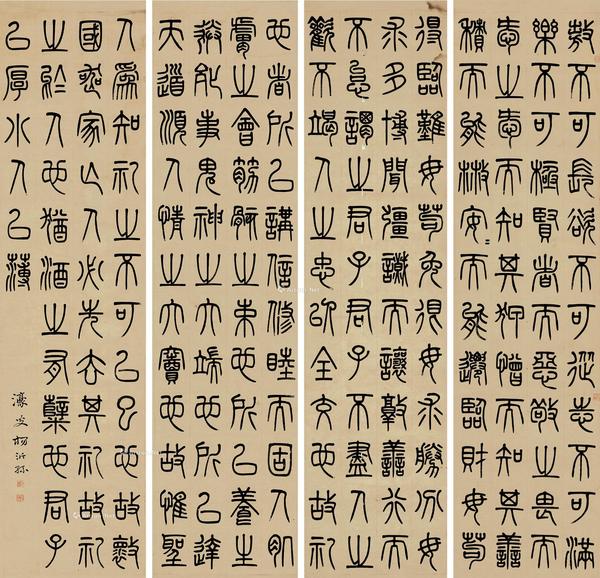 敖不可長欲不可從志不可滿
樂不可極賢者而惡敬之畏而
愛之愛而知其狎憎而知其善
積而能散安〻而能遷臨財毋苟
得臨難毋苟免很毋求勝分毋
求多博聞彊識而讓敦善行而
不怠謂之君子君子不盡人之
歡不竭人之忠以全交也故礼
也者所以講信修睦而固人肌
膚之會筋骸之束也所以養生
送死事鬼神之大端也所以達
天道順人情之大竇也故惟聖
人為知礼之不可以已也故壞
國喪家亡人必先去其礼故礼
之於人也猶酒之有櫱也君子
以厚小人以薄
濠叟楊沂孫